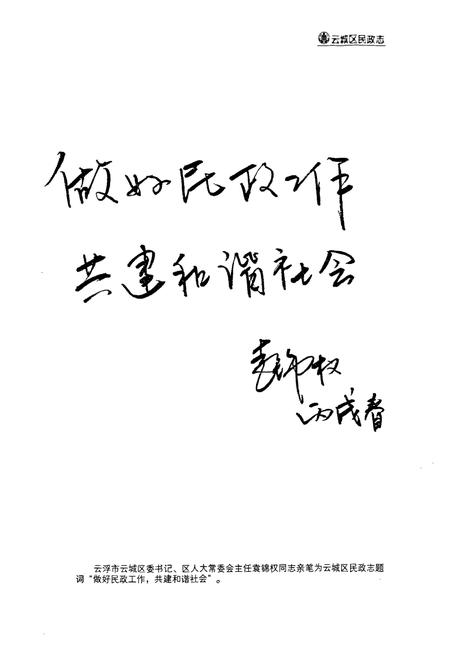 云城区民政志
做好民政工作
共建和谐社会
袁锦权
丙戌春
云浮市云城区委书记、区人大常委会主任袁锦权同志亲笔为云城区民政志题
词“做好民政工作，共建和谐社会”。